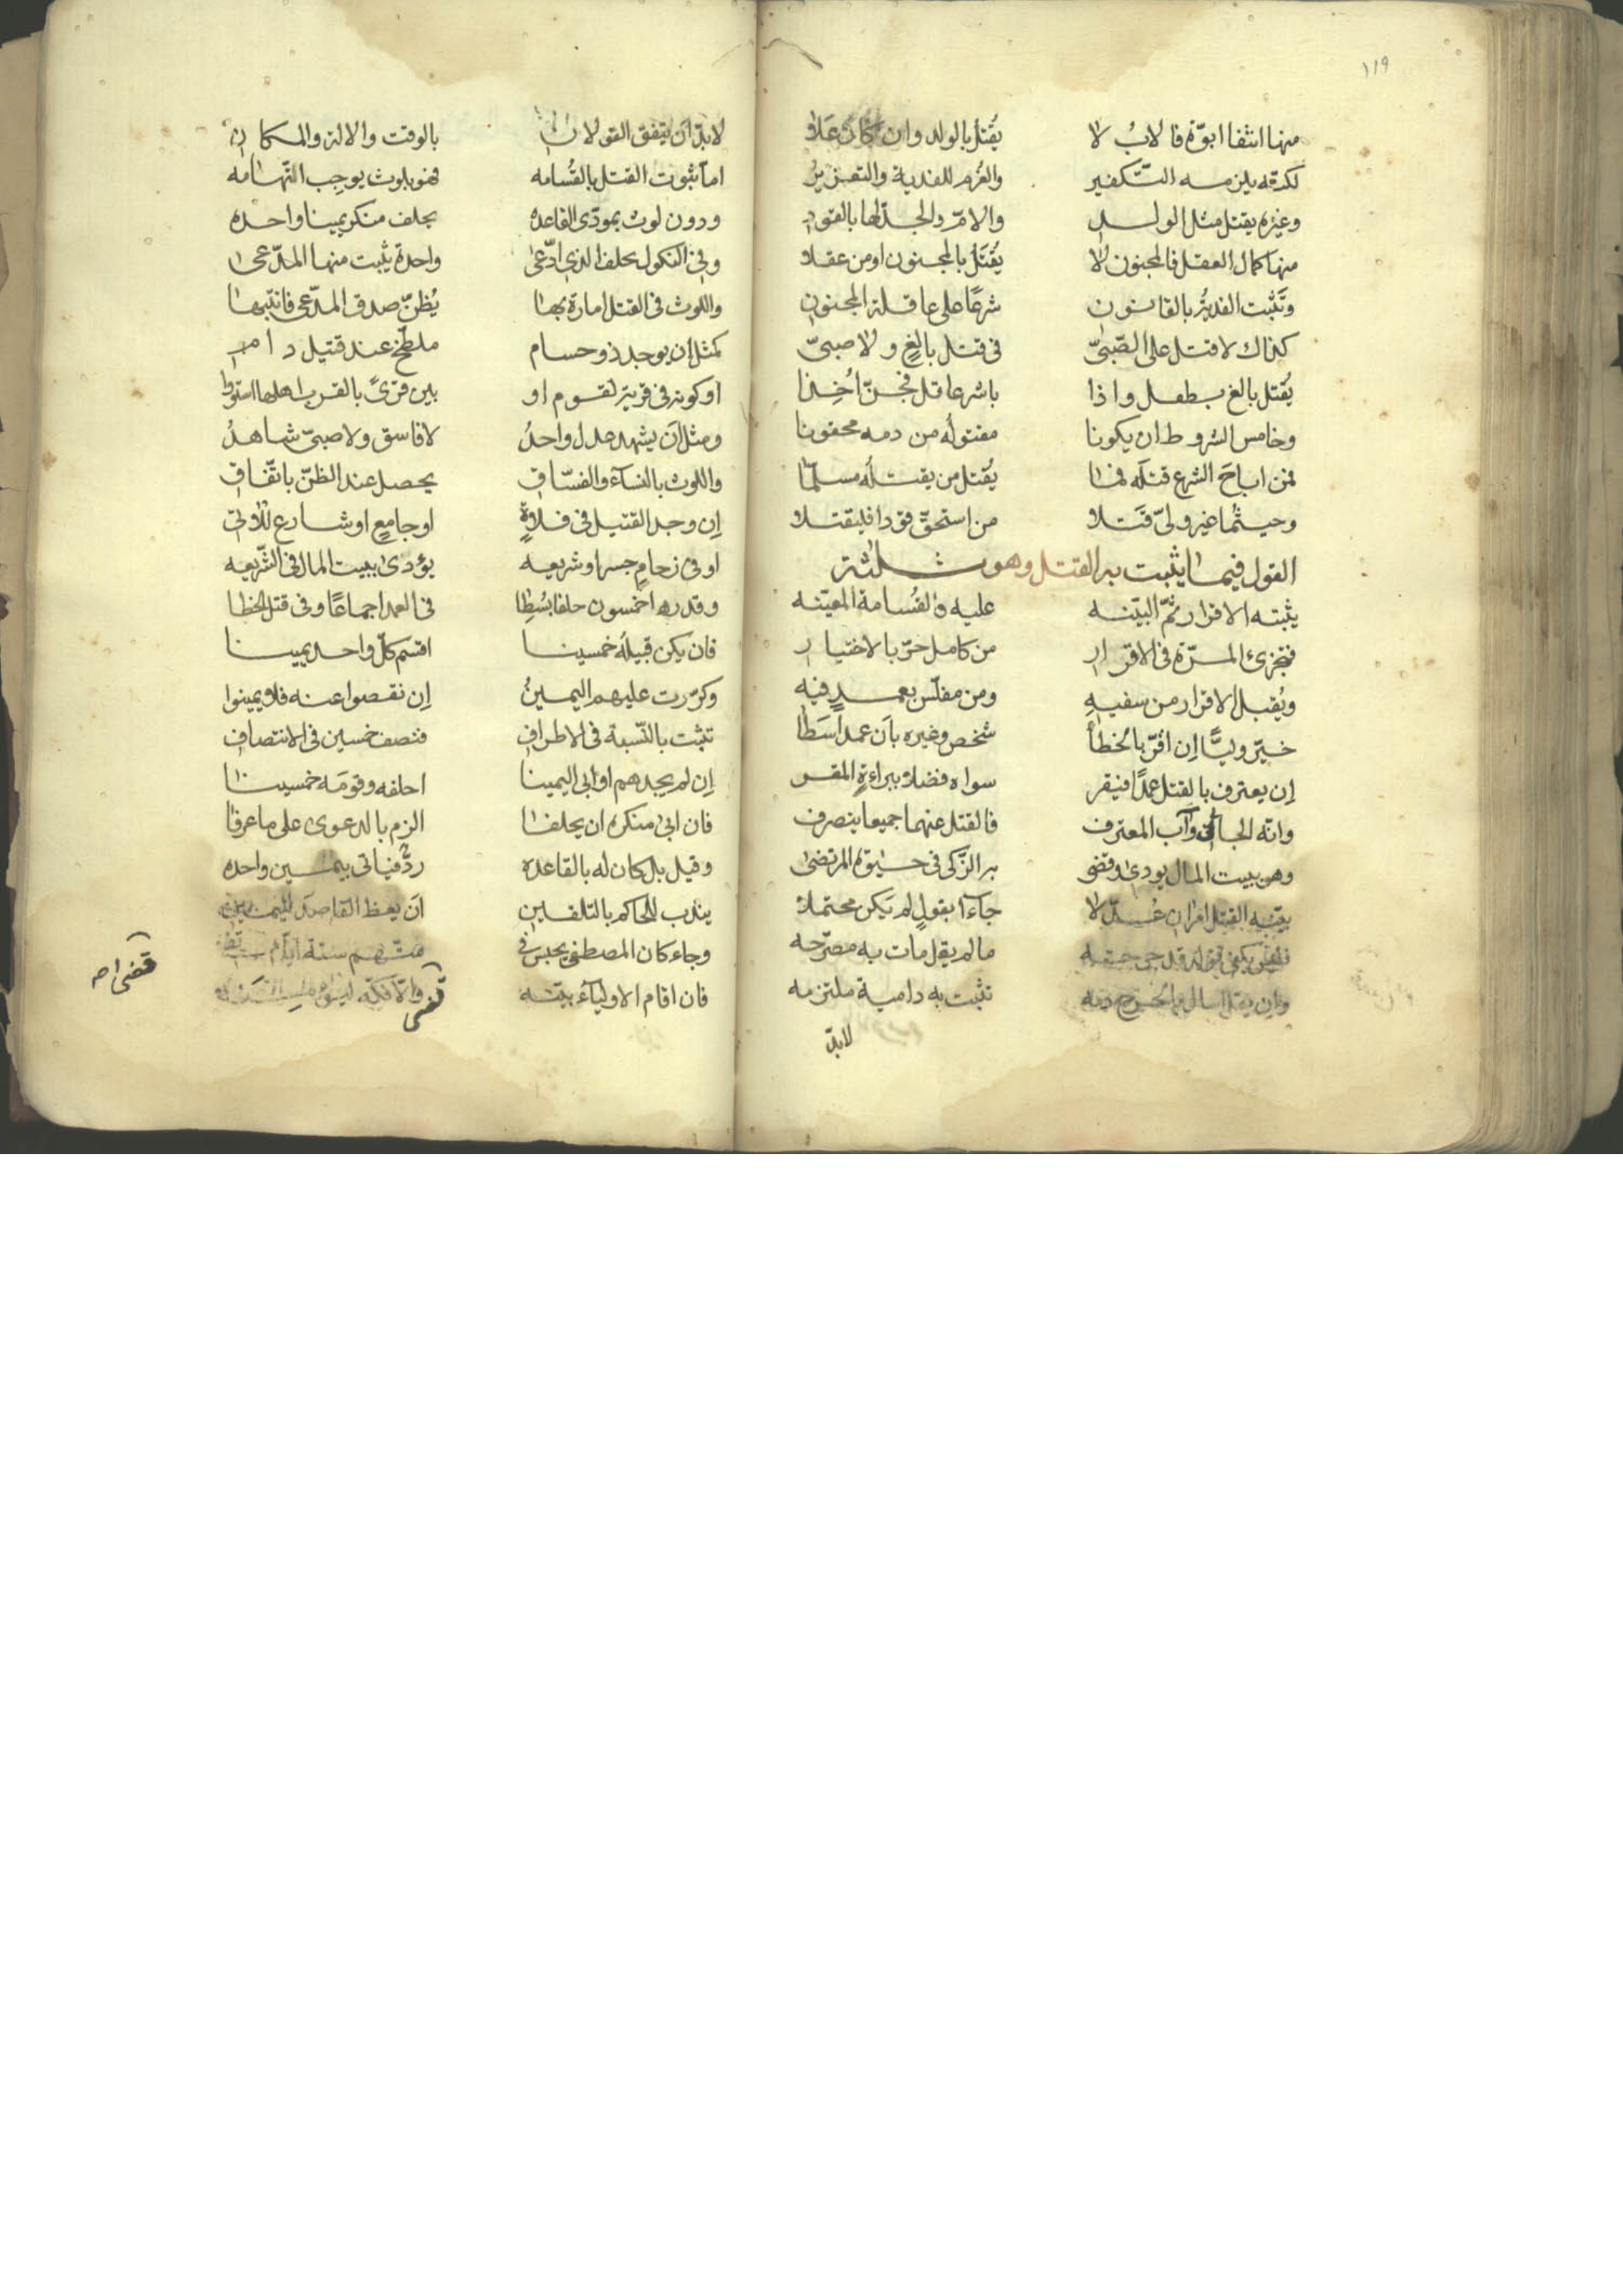 ١١٩
منها انتفا ابوّة فالاب لا يُقتل بالولد وان كان علا
لكنّه يلزمه التّكفير والغُرم للفدية والتعزيرُ
وغيره يقتل مثل الولد والامّ والجدّ لها بالقود
منها كمال العقل فالمجنون لا يُقتَل بالمجنون او من عقلا
وتَثبت الفديةُ بالقانون شرعًا على عاقلة المجنون
كذاك لا قتل على الصّبىّ فى قتل بالغٍ ولا صبىّ
يُقتل بالغ بطفل واذا باشر عاقل فجنّ اُخِذا
وخامس الشروط ان يكونا مقتوله من دمه محقونا
فمن اباحَ الشرع قتله فما يُقتل من يقتله مسلّما
وحيثما غير ولىّ قَتلا من استحقّ قودا فليقتلا
القول فيما يثبت به القتل وهو ثلثة
يثبته الاقرار ثمّ البيّنه عليه والقُسامة المعيّنه
فتجزئ المرّة فى الاقرار من كامل حرّ بالاختيار
ويُقبل الاقرار من سفيهِ ومن مفلّس بعمدٍ فيه
خيّر وليًّا اِن اقرّ بالخطأ شخص وغيره بأن عمدا سَطا
اِن يعترف بالقتل عمدًا فيقر سواه فضلا ببراءةِ المقر
وانّه الجانى وآب المعترف فالقتل عنهما جميعا ينصرف
وهو ببيت المال يودى وقضى به الزّكى فى حيوة المرتضى
بيّنة القتل امران عدّلا جاءآ بقولٍ لم يكن محتملا
فليس يكفى قوله قد جرحه ما لم يقل مات به مصرّحه
وان يقل اسال بالجرح دمه تثبت به دامية ملتزمه
لابدّ
لابدّ اَن يتفق القولان بالوقت والالة والمكان
امّا ثبوت القتل بالقُسامه فهو بلوث يوجِب التّهامه
ودون لوث بمودّى القاعده يحلف منكر يمينا واحده
وفى النكول يحلف الذى ادّعى واحدة يثبت منها المدّعى
واللوث فى القتل امارة بها يُظنّ صدق المدّعى فانتبها
كمثل ان يوجد ذو حسام ملطّخ عند قتيل دامى
او كونه فى قرية لقوم او بين قرىً بالقرب اهلها استووا
ومثل اَن يشهد عدل واحدُ لا فاسق ولا صبىّ شاهدُ
واللوث بالنسآء والفسّاق يحصل عند الظنّ باتّفاق
اِن وجد القتيل فى فلاةٍ او جامعٍ او شارع للاوتى
او فى زحامٍ جسرا وشريعه يؤدى ببيت المال فى الشّريعه
وقدرها خمسون حلفا بُسُطِا فى العمد اجماعًا وفى قتل الخطا
فان يكن قبيلَه خمسينا اقسم كلّ واحد يمينا
وكرّرت عليهم اليمينُ اِن نقصوا عنه فلا يمينوا
تثبت بالنّسبة فى الاطراف فنصف خمسين فى الانتصاف
اِن لم يجدهم او ابى اليمينا احلفه وقومَه خمسينا
فان ابى منكره ان يحلفا الزم بالدعوى على ما عرفا
وقيل بل كان له بالقاعده ردّ فياتى بيمين واحده
يندب للحاكم بالتلقين ان يعظ القاصد لليمين
وجاء كان المصطفى يحبس فى متّهم ستة ايّام تفى
فان اقام الاوليآء بيّنه قضى والّا فكّه
قضى اصـ